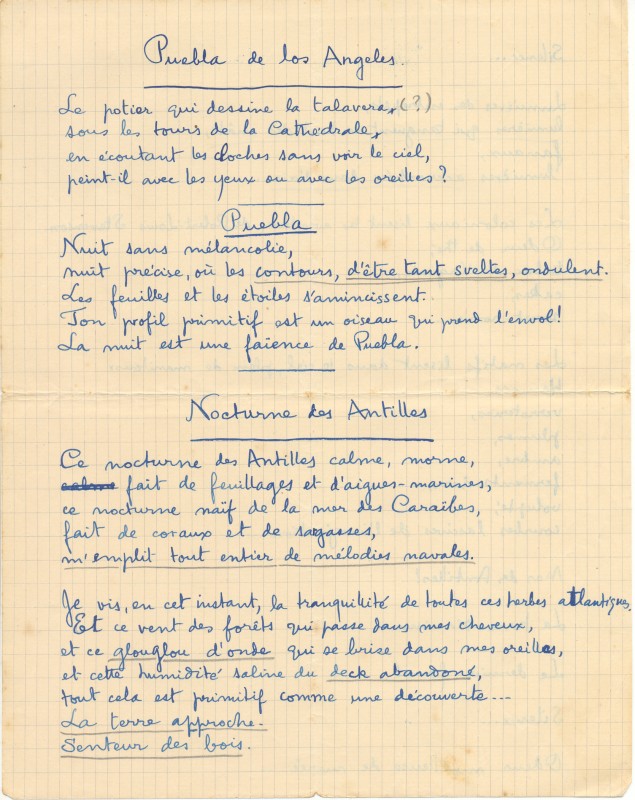 Puebla de los Angeles.
Le potier qui dessine la talavera, (?)
sous les tours de la Cathédrale,
en écoutant les cloches sans voir le ciel,
peint-il avec les yeux ou avec les oreilles ?
Puebla
Nuit sans mélancolie,
nuit précise, où les contours, d'être tant sveltes, ondulent.
Les feuilles et les étoiles s'amincissent.
Ton profil primitif est un oiseau qui prend l'envol !
La nuit est une faïence de Puebla.
Nocturne des Antilles
Ce nocturne des Antilles calme, morne,
calme fait de feuillages et d'aigues-marines,
ce nocturne naïf de la mer des Caraïbes,
fait de coraux et de sagasses,
m'emplit tout entier de mélodies navales.
Je vis, en cet instant, la tranquillité de toutes ces herbes atlantiques.
Et ce vent des forêts qui passe dans mes cheveux,
et ce glouglou d'onde qui se brise dans mes oreilles,
et cette humidité saline du deck abandoné,
tout cela est primitif comme une découverte...
La terre approche.
Senteur des bois.